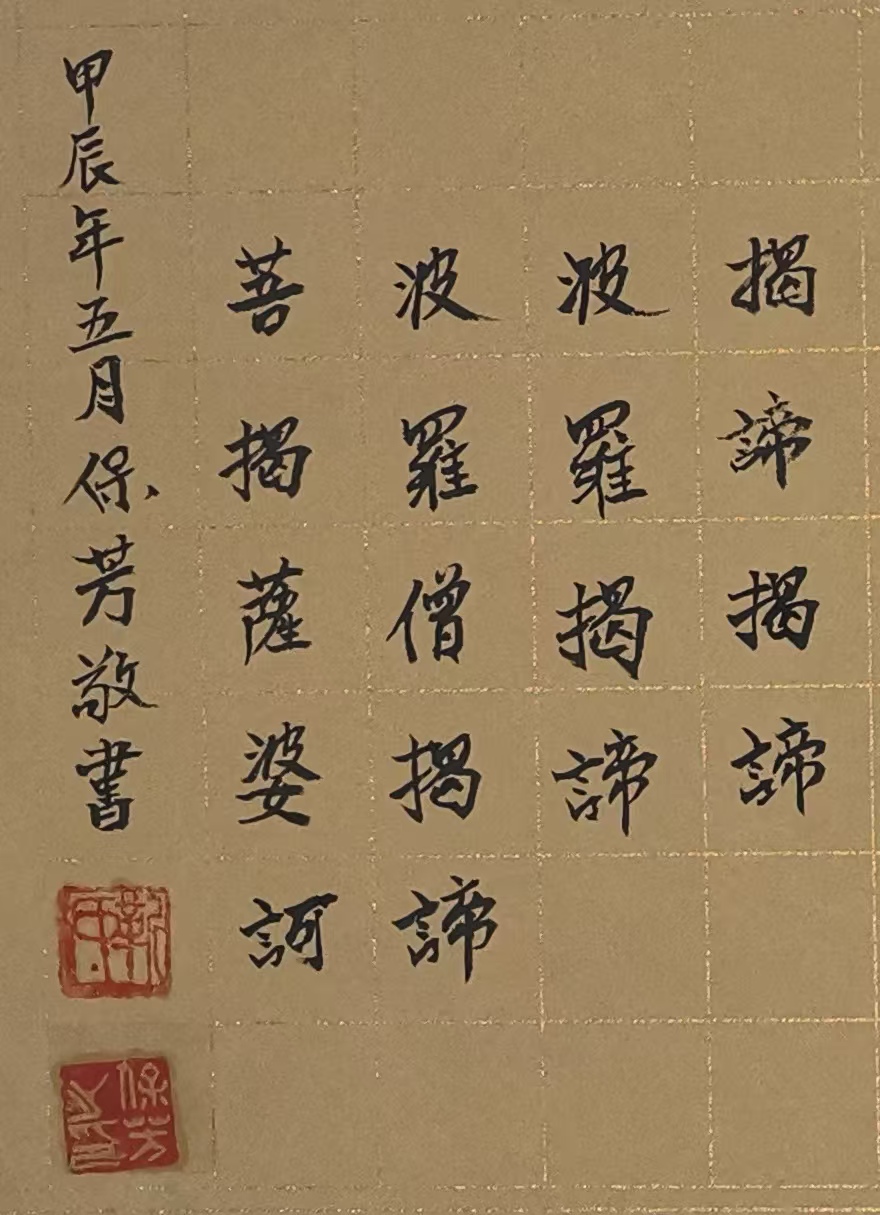 揭諦揭諦
波羅揭諦
波羅僧揭諦
菩揭薩婆訶
甲辰年五月保芳敬書
保芳之印